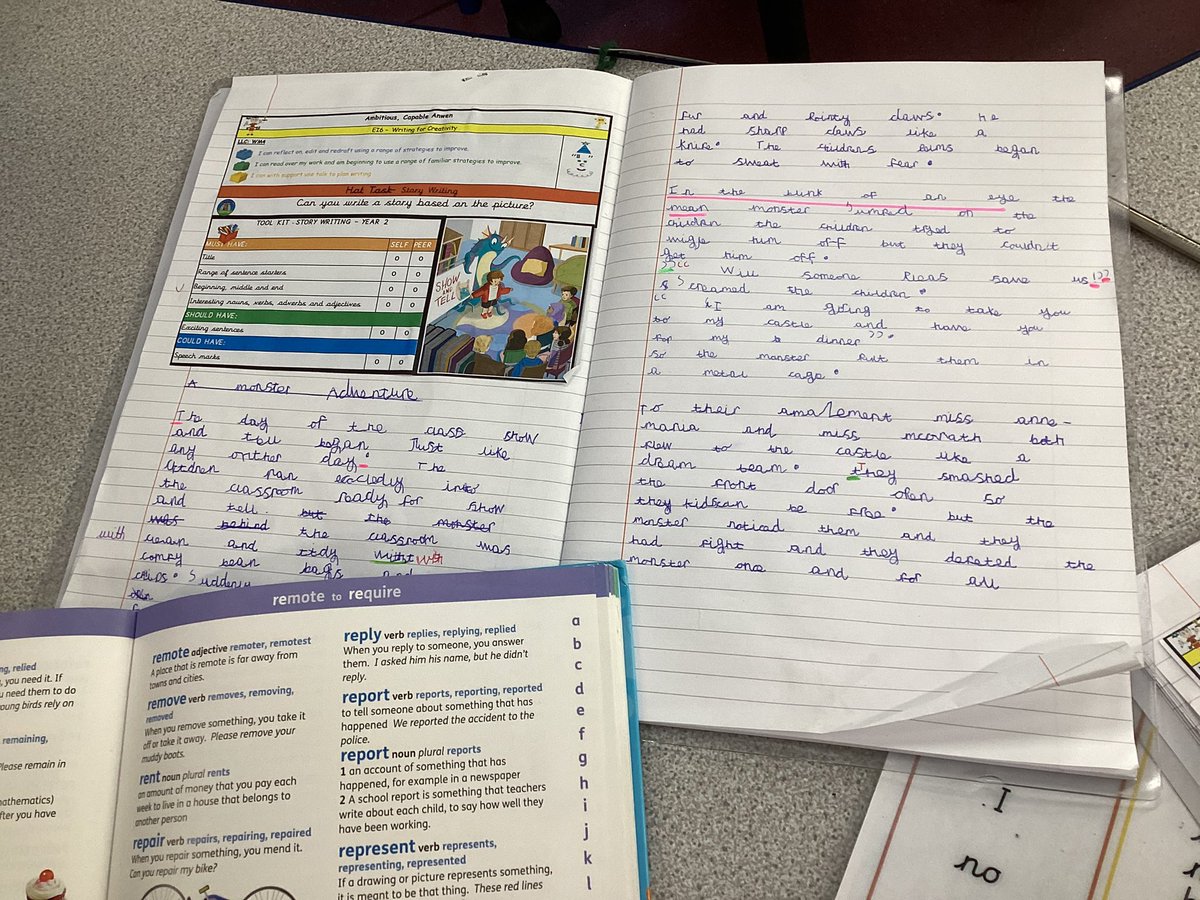 Ambitious, Capable Anwen
EI6 - Writing for Creativity
LLC: WM4
I can reflect on, edit and redraft using a range of strategies to improve.
I can read over my work and am beginning to use a range of familiar strategies to improve.
I can with support use talk to plan writing
Hot Task- Story Writing
Can you write a story based on the picture?
TOOL KIT -STORY WRITING - YEAR 2
MUST HAVE: SELF PEER
Title
Range of sentence starters
Beginning, middle and end
Interesting nouns, verbs, adverbs and adjectives
SHOULD HAVE:
Exciting sentences
COULD HAVE:
Speech marks
SHOW
AND
TELL
A monster Adventure
The day of the class show
and tell began Just like
any onther day. The
children ran into
the classroom ready for show
and tell. but the monster
was behind the classroom was
with
and tidy with
comfy bean bags and
Suddenly
fur and pointy claws. he
had sharp claws like a
knife. The childrens began
to sweat with fear.
In the of an eye the
mean monster jumped on the
children the children tryed to
him off but they couldn't
get him off.
"Will someone pleas save us!"
screamed the children.
"I am going to take you
to my castle and have you
for my dinner".
so the monster put them in
a metal cage.
To their amazement miss anne-
maria and miss mcgrath both
flew to the castle like a
dream team. They smashed
the front door open so
they kids can be free. but the
monster noticed them and they
had fight and they defeted the
monster once and for all
remote to require
remote adjective remoter, remotest
A place that is remote is far away from
towns and cities.
remove verb removes, removing,
removed
When you remove something, you take it
off or take it away. Please remove your
muddy boots.
rent noun plural rents
an amount of money that you pay each
week to live in a house that belongs to
another person
repair verb repairs, repairing, repaired
When you repair something, you mend it.
Can you repair my bike?
reply verb replies, replying, replied
When you reply to someone, you answer
them. I asked him his name, but he didn't
reply.
report verb reports, reporting, reported
to tell someone about something that has
happened We reported the accident to the
police.
report noun plural reports
1 an account of something that has
happened, for example in a newspaper
2 A school report is something that teachers
write about each child, to say how well they
have been working.
represent verb represents,
representing, represented
If a drawing or picture represents something,
it is meant to be that thing. These red lines
a
b
c
d
e
f
g
h
i
j
k
l
relied
you need it. If
need them to do
young birds rely on
remaining,
Please remain in
mathematics)
after you have
I
no